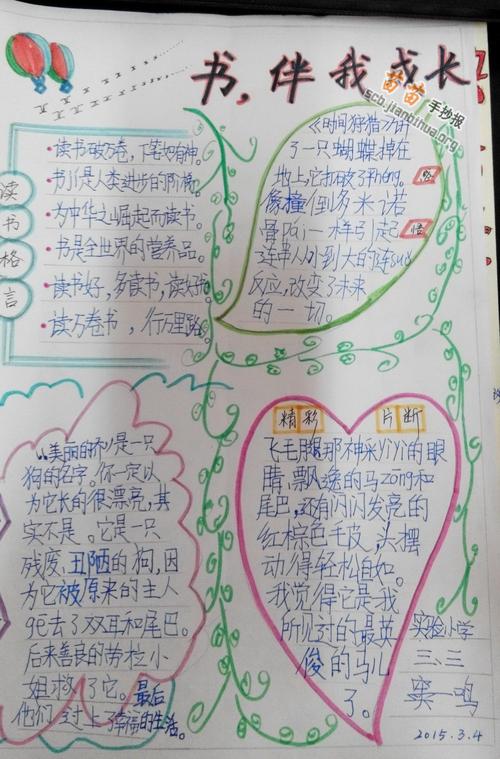 书,伴我成长
苗苗手抄报
scb.jianghua.org
读书格言
读书破万卷,下笔如有神。
书儿是人类进步的阶梯。
为中华之崛起而读书。
书是全世界的营养品。
读书好,多读书,读好书。
读万卷书,行万里路。
《时间狩猎》讲
了一只蝴蝶掉在
地上,它打破了平héng。
像撞到多米诺
骨pái一样引起
了连串从小到大的连suǒ
反应,改变了未来
的一切。
感
悟
"美丽的"利是一只
狗的名字。你一定以
为它长的很漂亮,其
实不是。它是一只
残废、丑陋的狗,因
为它被原来的主人
gē去了双耳和尾巴。
后来善良的劳拉小
姐救了它。最后
他们过上了幸福的生活。
精彩 片断
飞毛腿那神采yìyì的眼
睛,飘逸的马zōng和
尾巴,还有闪闪发亮的
红棕色毛皮,头摆
动得轻松自如。
我觉得它是我
所见过的最英
俊的马儿
了。
实验小学
三、三
窦一鸣
2015.3.4